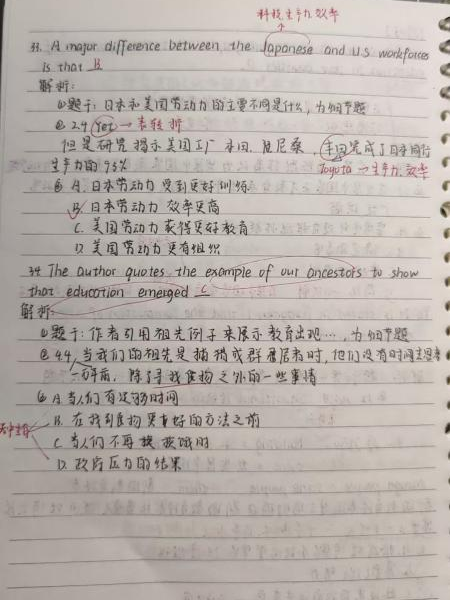 科技生产力效率
33. A major difference between the Japanese and U.S workforces
is that B
解析:
①题干: 日本和美国劳动力的主要不同是什么, 为细节题
② 2.4 Yet → 表转折
但是研究揭示美国工厂 本田、尼桑、丰田完成了日本同行
生产力的95%
Toyota → 生产力, 效率
③ A. 日本劳动力受到更好训练
B. 日本劳动力 效率更高
C. 美国劳动力获得更好教育
D. 美国劳动力更有组织
34 The author quotes the example of our ancestors to show
that education emerged C
解析:
①题干: 作者引用祖先例子来展示教育出现…, 为细节题
② 4.4, 当我们的祖先是捕猎或群居者时, 他们没有时间去思考
除了寻找食物之外的一些事情
③ A 当人们有足够时间
B. 在找到食物更好的方法之前
C. 当人们不再挨饿时
D. 政府压力的结果